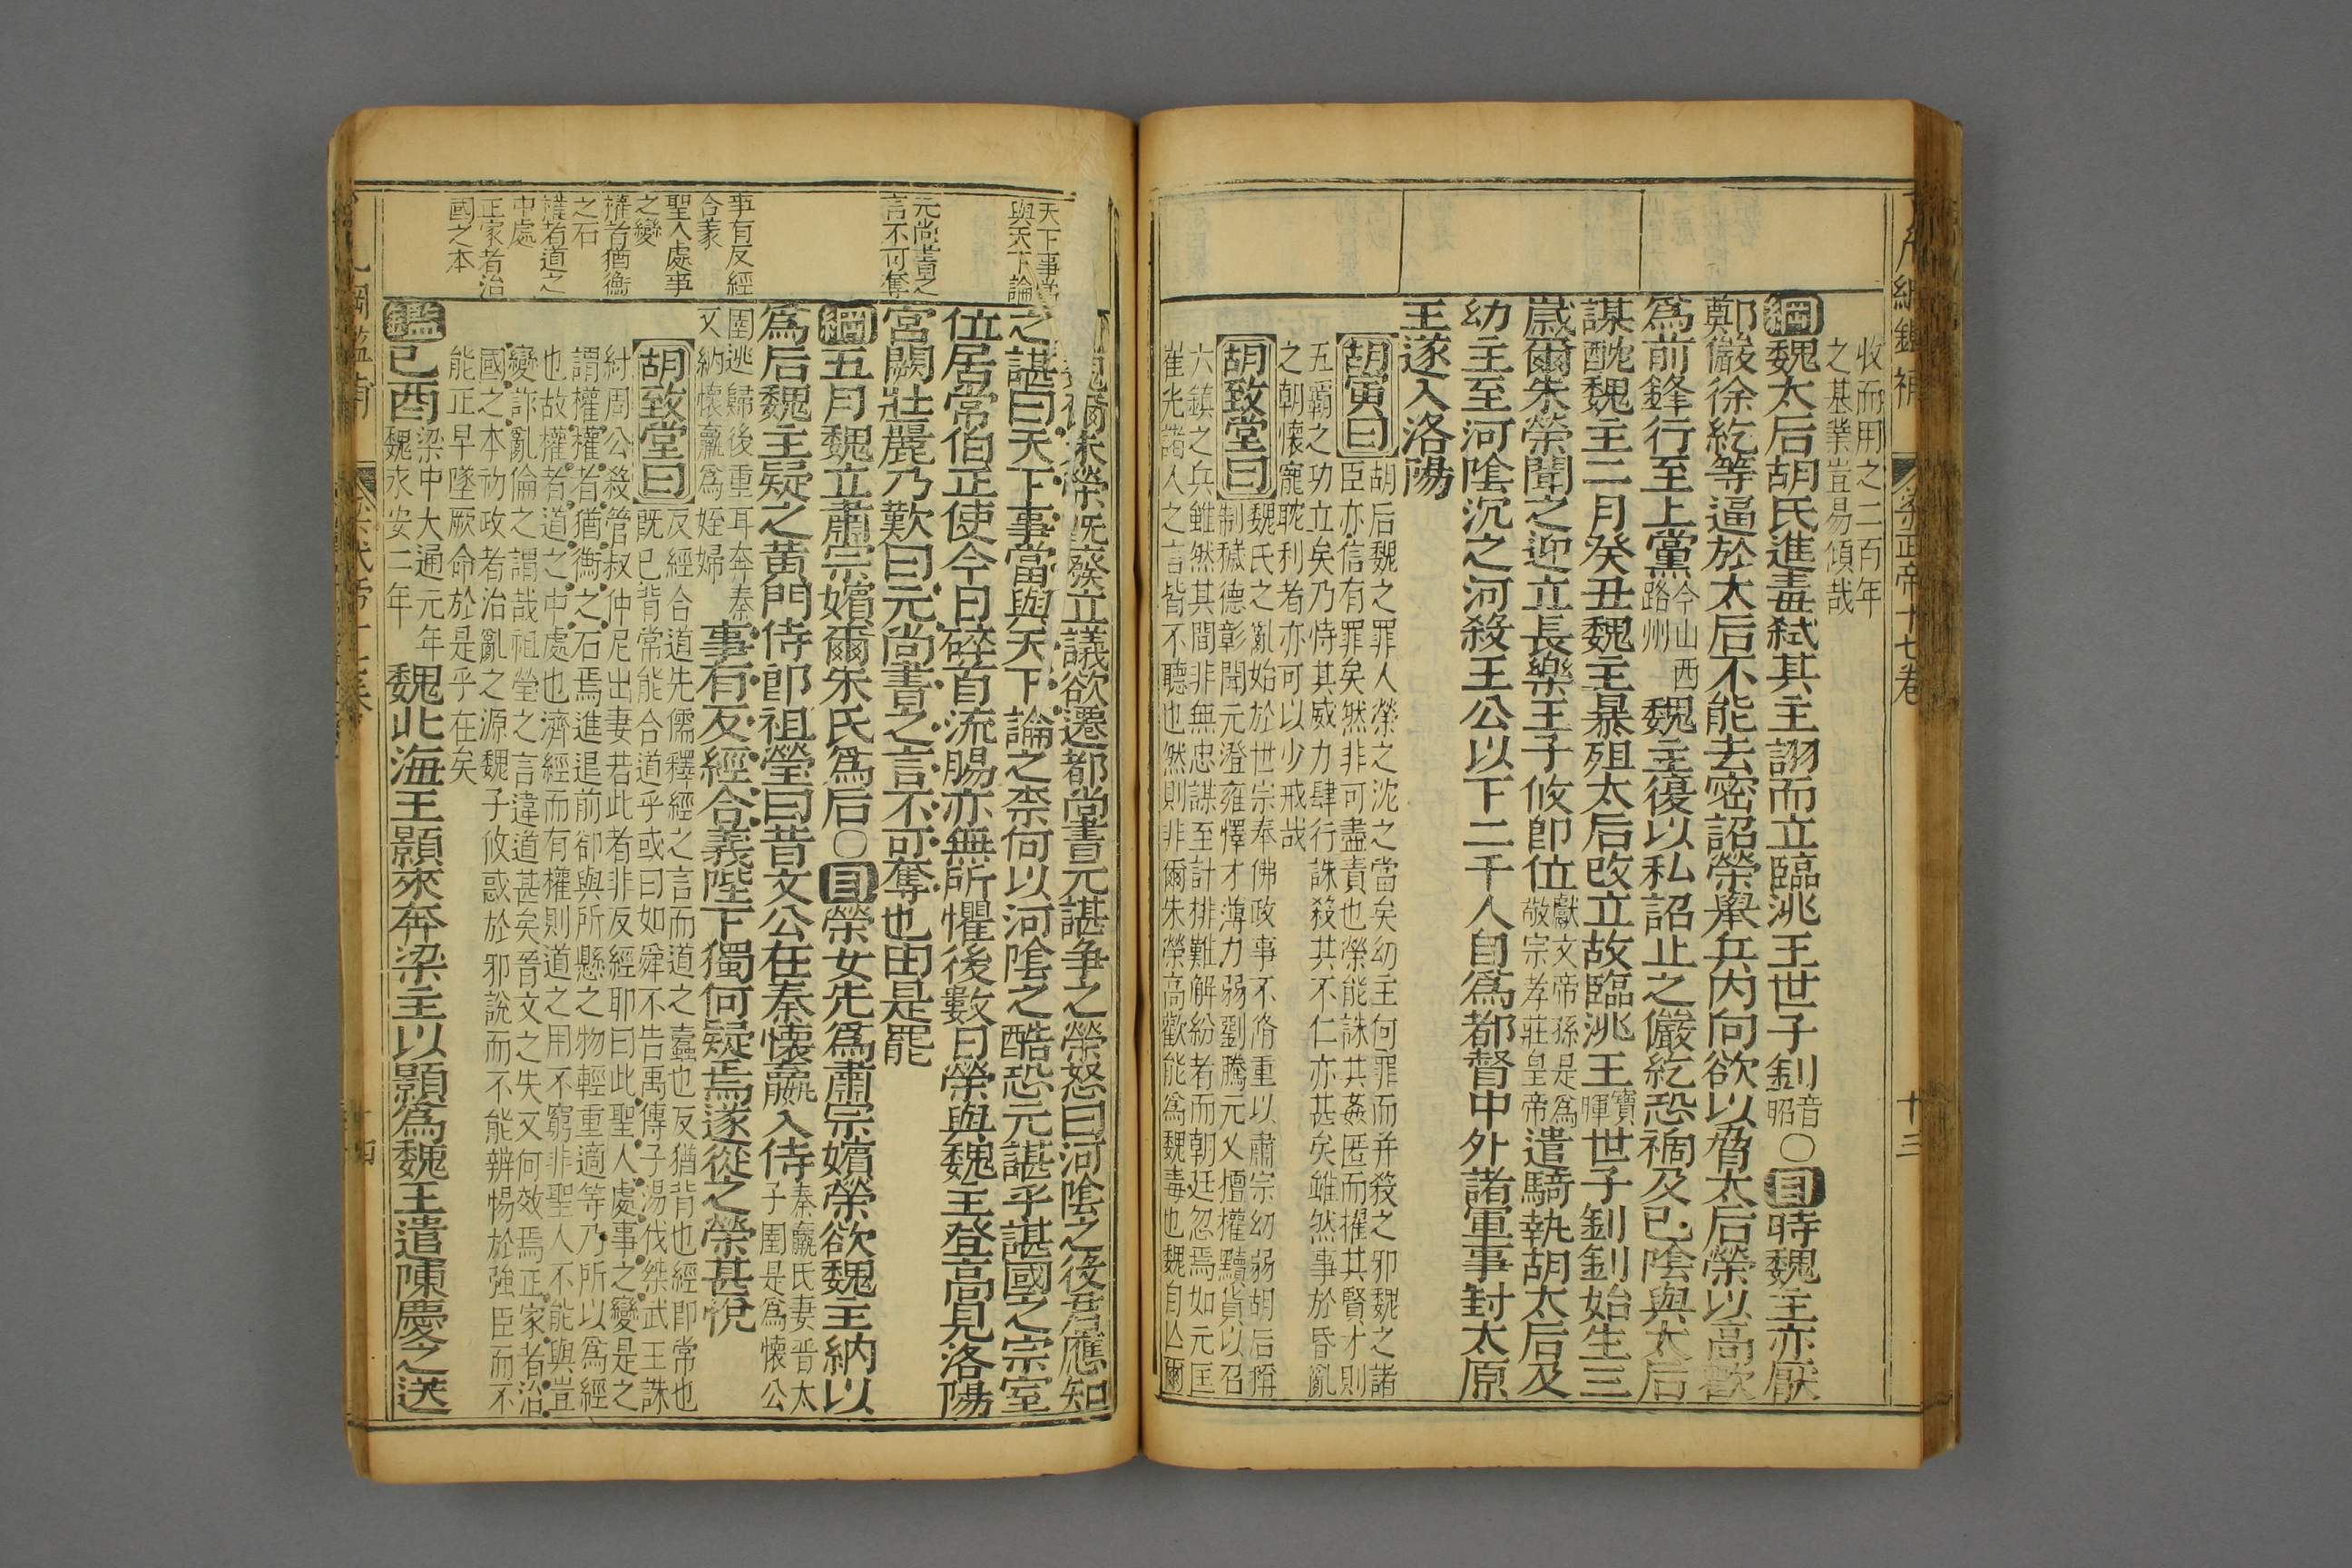 收而用之二百年
之基業豈易傾哉
綱魏太后胡氏進毒弑其主詡而立臨洮王世子釗音昭○目時魏主亦厭
鄭儼徐紇等逼於太后不能去密詔榮舉兵內向欲以脅太后榮以高歡
爲前鋒行至上黨今山西路州魏主復以私詔止之儼紇恐禍及已陰與太后
謀酖魏主二月癸丑魏主暴殂太后改立故臨洮王寶暉世子釗釗始生三
歲爾朱榮聞之迎立長樂王子攸卽位獻文帝孫是爲敬宗孝莊皇帝遣騎執胡太后及
幼主至河陰沉之河殺王公以下二千人自爲都督中外諸軍事封太原
王遂入洛陽
胡寅曰胡后魏之罪人榮之沈之當矣幼主何罪而并殺之邪魏之諸
臣亦信有罪矣然非可盡責也榮能誅其姦匿而擢其賢才則
五霸之功立矣乃恃其威力肆行誅殺其不仁亦甚矣雖然事於昏亂
之朝懷寵耽利者亦可以少戒哉
胡致堂曰魏氏之亂始於世宗奉佛政事不脩重以肅宗幼弱胡后稱
制穢德彰聞元澄雍懌才薄力弱劉騰元乂擅權黷貨以召
六鎮之兵雖然其間非無忠謀至計排難解紛者而朝廷忽焉如元匡
崔光諸人之言皆不聽也然則非爾朱榮高歡能爲魏毒也魏自亾爾
卷 正帝十七卷
十三
天下事當
與天下論
元尚書之
言不可奪
事有反經
合義
聖人處事
之變
權者猶衡
之石
權者道之
中處
正家者治
國之本
魏爾朱榮旣廢立議欲遷都尚書元諶争之榮怒曰河陰之役君應知
之諶曰天下事當與天下論之柰何以河陰之酷恐元諶乎諶國之宗室
位居常伯正使今日碎首流腸亦無所懼後數日榮與魏主登高見洛陽
宮闕壯麗乃歎曰元尚書之言不可奪也由是罷
綱五月魏立肅宗嬪爾朱氏爲后○目榮女先爲肅宗嬪榮欲魏主納以
爲后魏主疑之黃門侍郎祖瑩曰昔文公在秦懷嬴入侍秦嬴氏妻晉太子圉是爲懷公
圉逃歸後重耳奔秦又納懷嬴爲姪婦事有反經合義陛下獨何疑焉遂從之榮甚悅
胡致堂曰反經合道先儒釋經之言而道之蠹也反猶背也經即常也
旣已背常能合道乎或曰如舜不告禹傳子湯伐桀武王誅
紂周公殺管叔仲尼出妻若此者非反經耶曰此聖人處事之變是之
謂權權者猶衡之石焉進退前卻與所懸之物輕重適等乃所以爲經
也故權者道之中處也濟經而有權則道之用不窮非聖人不能與豈
變詐亂倫之謂哉祖瑩之言違道甚矣晉文之失又何效焉正家者治
國之本初政者治亂之源魏子攸惑於邪說而不能辨惕於強臣而不
能正早墜厥命於是乎在矣
鑑己酉梁中大通元年魏永安二年魏北海王顥來奔梁主以顥爲魏王遣陳慶之送